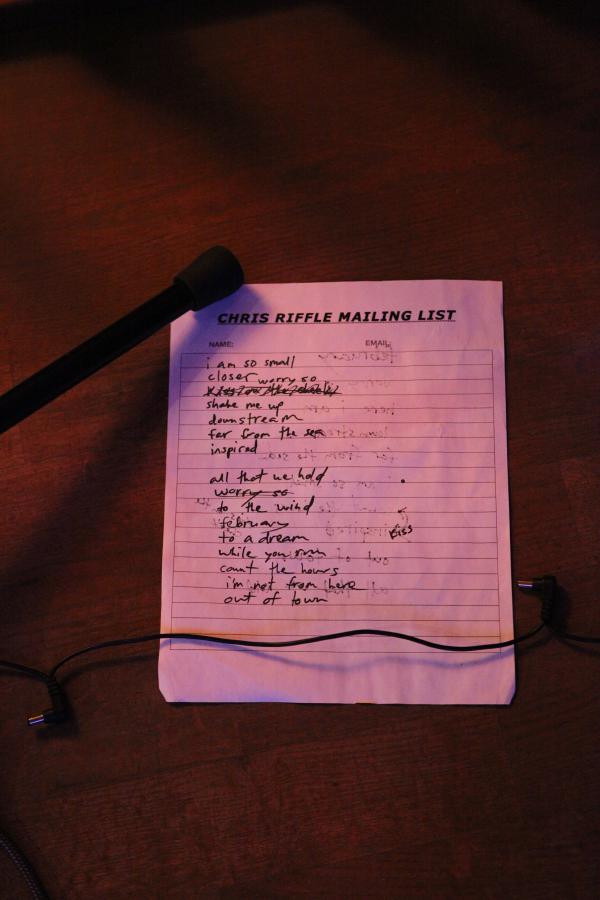 CHRIS RIFFLE MAILING LIST
NAME: EMAIL:
i am so small
closer worry so
shake me up
downstream
far from the sea
inspired
all that we hold
worry so
to the wind
february
to a dream kiss
while you
count the hours
i'm not from here
out of town